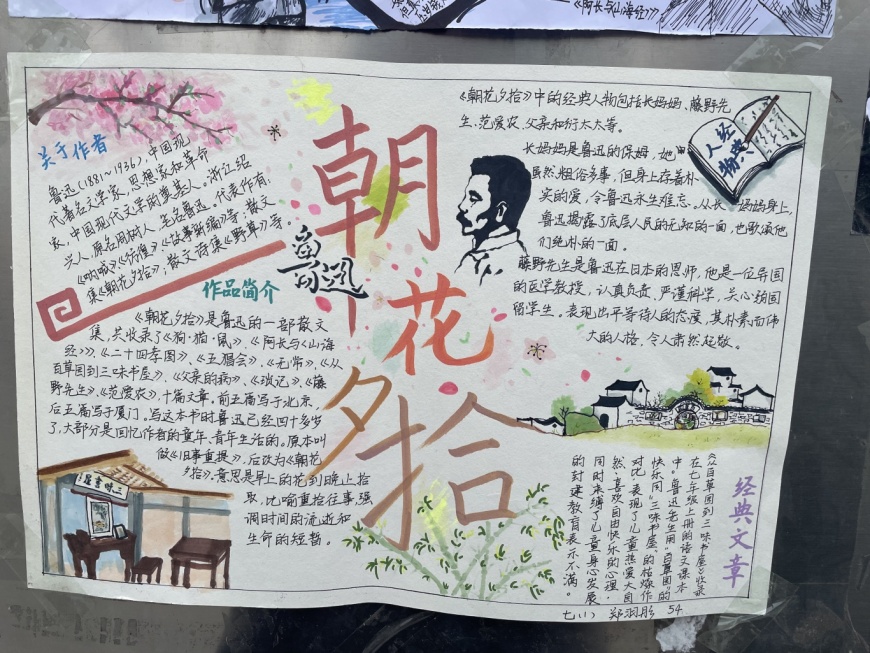 《阿长与《山海经》》
朝花夕拾
鲁迅
关于作者
鲁迅(1881~1936),中国现
代著名文学家、思想家和革命
家,中国现代文学的奠基人。浙江绍
兴人,原名周树人,笔名鲁迅。代表作有:
《呐喊》、《彷徨》、《故事新编》等;散文
集《朝花夕拾》;散文诗集《野草》等。
作品简介
《朝花夕拾》是鲁迅的一部散文
集,共收录了《狗·猫·鼠》、《阿长与《山海
经》》、《二十四孝图》、《五猖会》、《无常》、《从
百草园到三味书屋》、《父亲的病》、《琐记》、《藤
野先生》、《范爱农》,十篇文章。前五篇写于北京,
后五篇写于厦门,写这本书时鲁迅已经四十多岁
了,大部分是回忆作者的童年、青年生活的。原本叫
做《旧事重提》,后改为《朝花
夕拾》,意思是早上的花到晚上拾
取,比喻重拾往事,强
调时间的流逝和
生命的短暂。
三味书屋
《朝花夕拾》中的经典人物包括长妈妈、藤野先
生、范爱农、父亲和衍太太等。
经典人物
长妈妈是鲁迅的保姆,她
虽然粗俗多事,但身上存着朴
实的爱,令鲁迅永生难忘。从长妈妈身上,
鲁迅揭露了底层人民的无知的一面,也歌颂他
们纯朴的一面。
藤野先生是鲁迅在日本的恩师,他是一位异国
的医学教授,认真负责、严谨科学、关心弱国
留学生。表现出平等待人的态度,其朴素而伟
大的人格,令人肃然起敬。
经典文章
《从百草园到三味书屋》收录
在七年级上册的语文课本
中。鲁迅先生用"百草园"的
快乐同"三味书屋"的枯燥作
对比,表现了儿童热爱大自
然、喜欢自由快乐的心理,
同时来缚了儿童身心发展
的封建教育表示不满。
七(1) 郑羽彤 54